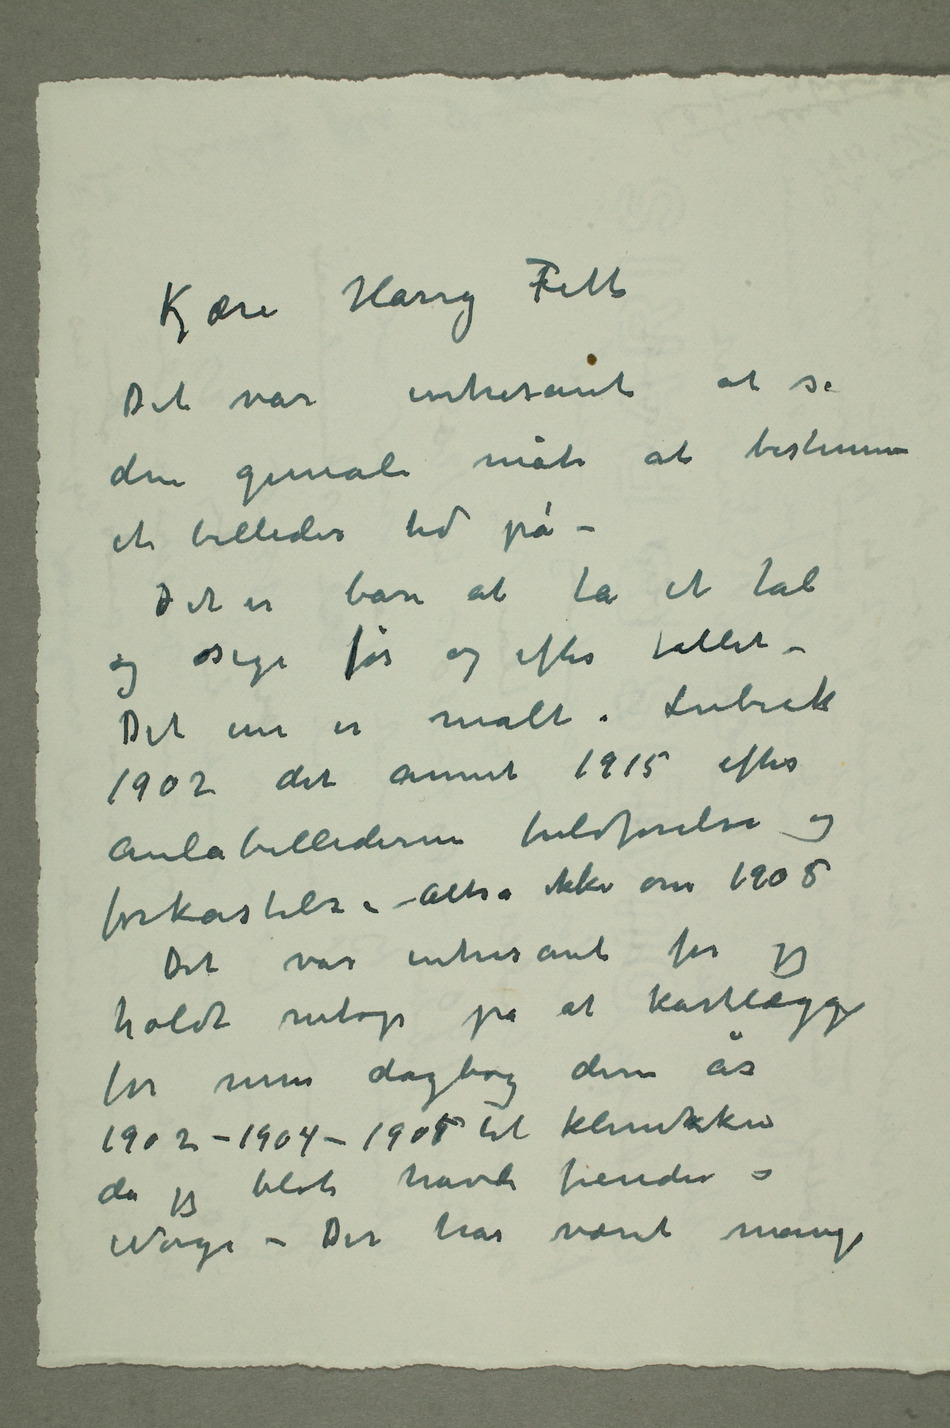 Kjære Harry Fett
Det var intresant at se
den geniale måte at bestemme
et billedes tid på –
Det er bare at ta et tal
og sige før og efter tallet –
Det ene er malt i Lubeck
1902 det annet 1915 efter
Aulabillederne fuldførelse og
forkastelse – Altså ikke om 1908
Det var intresant for jeg
holdt netop på at kartlægge
for min dagbog dem år
1902 – 1904 – 1908 til klinikken
da jeg blot havde fiender i
Norge – Der har været mange